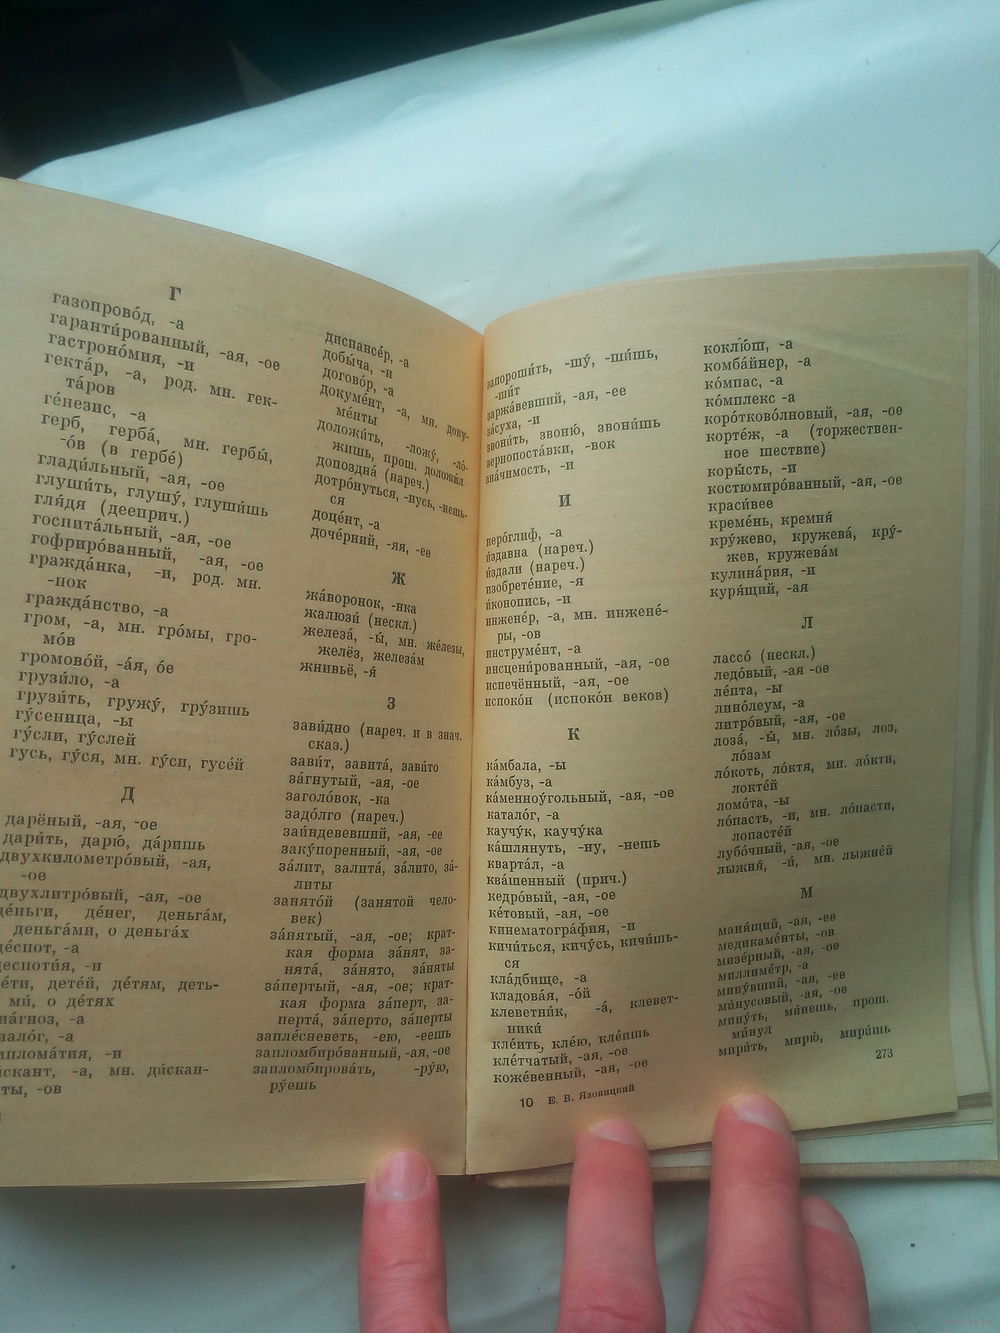 Г
газопрово́д, -а
гаранти́рованный, -ая, -ое
гастроно́мия, -и
гекта́р, -а, род. мн. гек-
та́ров
ге́незис, -а
герб, герба́, мн. гербы́,
-о́в (в гербе́)
глади́льный, -ая, -ое
глуши́ть, глушу́, глуши́шь
гля́дя (дееприч.)
госпита́льный, -ая, -ое
гофриро́ванный, -ая, -ое
гражда́нка, -и, род. мн.
-нок
гражда́нство, -а
гром, -а, мн. гро́мы, гро-
мо́в
громово́й, -а́я, о́е
грузи́ло, -а
грузи́ть, гружу́, гру́зишь
гу́сеница, -ы
гу́сли, гу́слей
гусь, гу́ся, мн. гу́си, гусе́й
Д
дарёный, -ая, -ое
дари́ть, дарю́, да́ришь
двухкилометро́вый, -ая,
-ое
двухлитро́вый, -ая, -ое
де́ньги, де́нег, деньга́м,
деньга́ми, о деньга́х
де́спот, -а
деспоти́я, -и
де́ти, дете́й, де́тям, деть-
ми́, о де́тях
диа́гноз, -а
диало́г, -а
диплома́тия, -и
ди́скант, -а, мн. ди́скан-
ты, -ов
диспансе́р, -а
добы́ча, -и
догово́р, -а
докуме́нт, -а, мн. доку-
ме́нты
доложи́ть, -ложу́, -ло́-
жишь, прош. доложи́л
допоздна́ (нареч.)
дотро́нуться, -нусь, -нешь-
ся
доце́нт, -а
доче́рний, -яя, -ее
Ж
жа́воронок, -нка
жалюзи́ (нескл.)
железа́, -ы́, мн. же́лезы,
желёз, железа́м
жнивьё, -я́
З
зави́дно (нареч. и в знач.
сказ.)
зави́т, завита́, зави́то
за́гнутый, -ая, -ое
заголо́вок, -ка
задо́лго (нареч.)
заи́ндевевший, -ая, -ее
заку́поренный, -ая, -ое
за́лит, залита́, за́лито, за́-
литы
занято́й (занятой чело-
век)
за́нятый, -ая, -ое; крат-
кая форма за́нят, за-
нята́, за́нято, за́няты
за́пертый, -ая, -ое; крат-
кая форма за́перт, за-
перта́, за́перто, за́перты
запле́сневеть, -ею, -еешь
запломбиро́ванный, -ая, -ое
запломбирова́ть, -ру́ю,
ру́ешь
запороши́ть, -шу́, -ши́шь,
-ши́т
заржа́вевший, -ая, -ее
за́суха, -и
звони́ть, звоню́, звони́шь
зернопоста́вки, -вок
зна́чимость, -и
И
иеро́глиф, -а
и́здавна (нареч.)
и́здали (нареч.)
изобрете́ние, -я
и́конопись, -и
инжене́р, -а, мн. инжене́-
ры, -ов
инструме́нт, -а
инсцени́рованный, -ая, -ое
испечённый, -ая, -ое
испоко́н (испоко́н веков)
К
ка́мбала, -ы
ка́мбуз, -а
каменноу́гольный, -ая, -ое
катало́г, -а
каучу́к, каучу́ка
ка́шлянуть, -ну, -нешь
кварта́л, -а
ква́шенный (прич.)
кедро́вый, -ая, -ое
ке́товый, -ая, -ое
кинематогра́фия, -и
кичи́ться, кичу́сь, кичи́шь-
ся
кла́дбище, -а
кладова́я, -о́й
клеветни́к, -а́, клевет-
ники́
кле́ить, кле́ю, кле́ишь
кле́тчатый, -ая, -ое
коже́венный, -ая, -ое
10 Е. В. Язовицкий
коклю́ш, -а
комба́йнер, -а
ко́мпас, -а
ко́мплекс -а
коро́тково́лновый, -ая, -ое
корте́ж, -а (торжествен-
ное шествие)
коры́сть, -и
костюмиро́ванный, -ая, -ое
краси́вее
креме́нь, кремня́
кру́жево, кружева́, кру́-
жев, кружева́м
кулина́рия, -и
куря́щий, -ая
Л
лассо́ (нескл.)
ледо́вый, -ая -ое
ле́пта, -ы
лино́леум, -а
литро́вый, -ая, -ое
лоза́, -ы́, мн. ло́зы, лоз,
ло́зам
ло́коть, ло́ктя, мн. ло́кти,
локте́й
ломо́та, -ы
ло́пасть, -и, мн. ло́пасти,
лопасте́й
лубо́чный, -ая, -ое
лыжня́, -и́, мн. лыжне́й
М
маня́щий, -ая, -ее
медикаме́нты, -ов
мизе́рный, -ая, -ое
миллиме́тр, -а
мину́вший, -ая, -ее
ми́нусовый, -ая, -ое
мину́ть, ми́нешь, прош.
ми́нул
мири́ть, мирю́, мири́шь
273